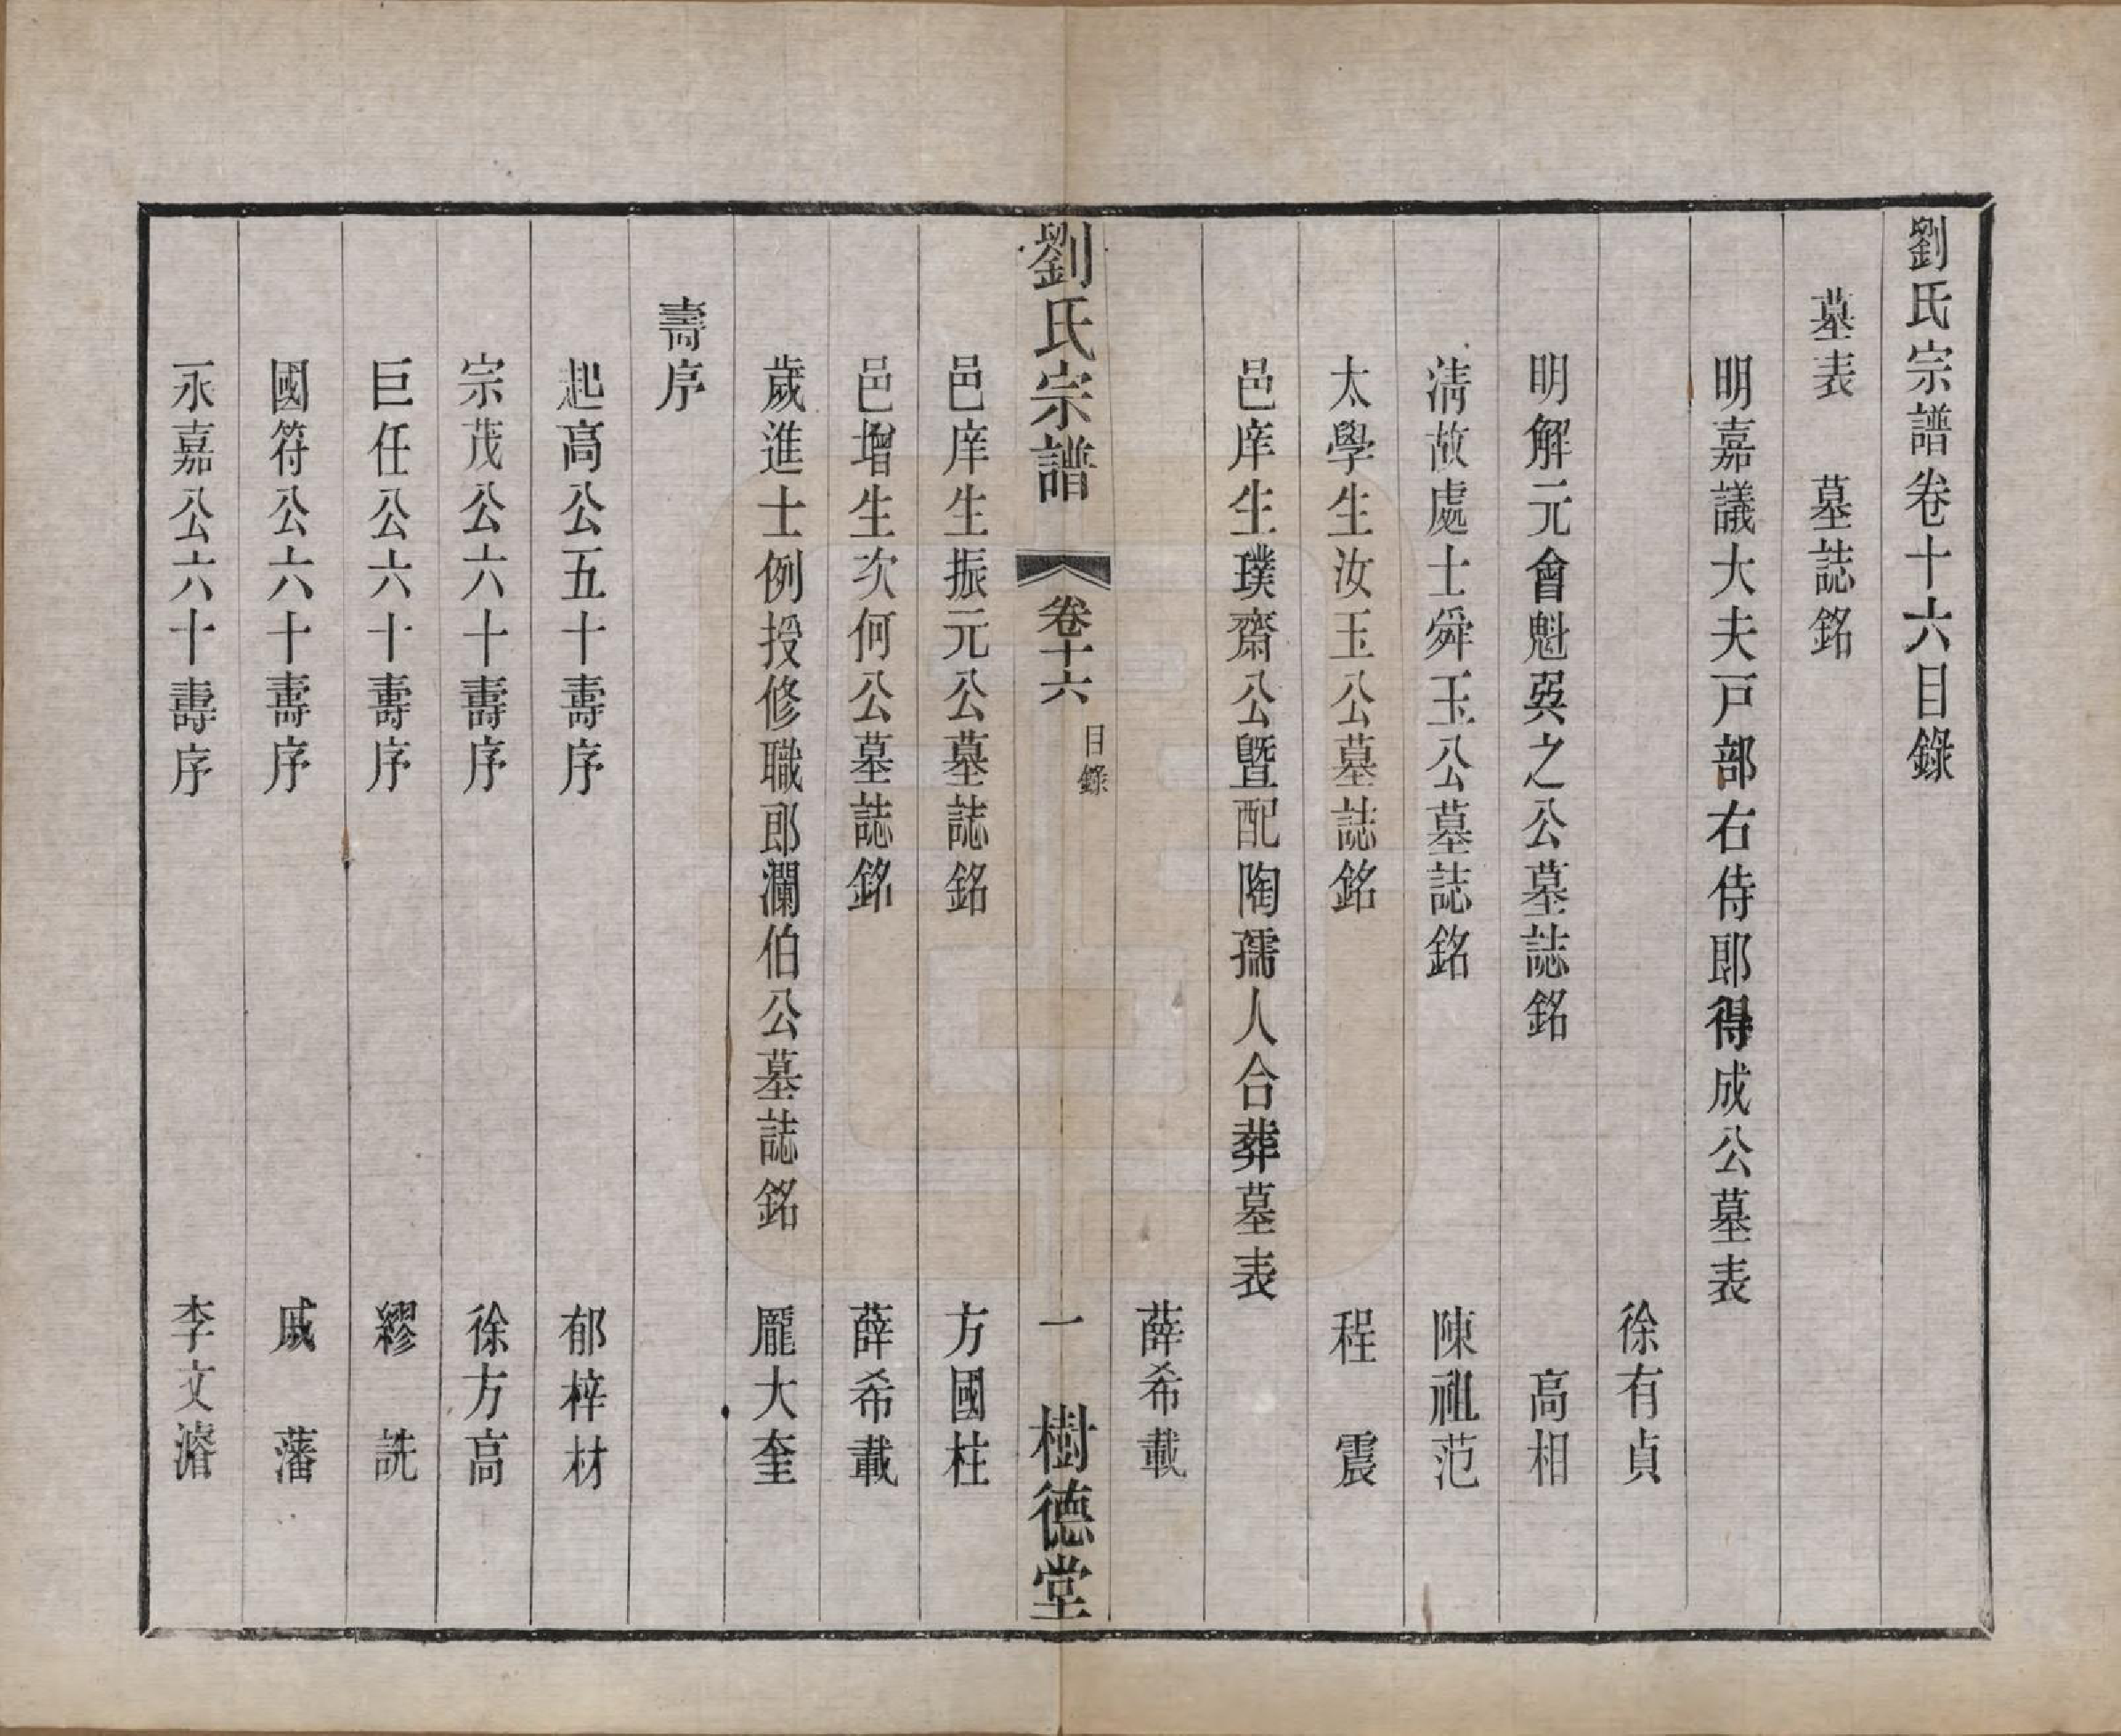 劉氏宗譜卷十六目錄
墓表 墓誌銘
明嘉議大夫戸部右侍郎得成公墓表
徐有貞
明解元會魁巽之公墓誌銘 高相
清故處士舜玉公墓誌銘 陳祖范
太學生汝玉公墓誌銘 程震
邑庠生璞齋公曁配陶孺人合葬墓表
薛希載
劉氏宗譜 卷十六 目錄 一 樹德堂
邑庠生振元公墓誌銘 方國柱
邑增生次何公墓誌銘 薛希載
歲進士例授修職郎瀾伯公墓誌銘 龎大奎
壽序
起高公五十壽序 郁梓材
宗茂公六十壽序 徐方高
巨任公六十壽序 繆詵
國符公六十壽序 戚藩
永嘉公六十壽序 李文濬